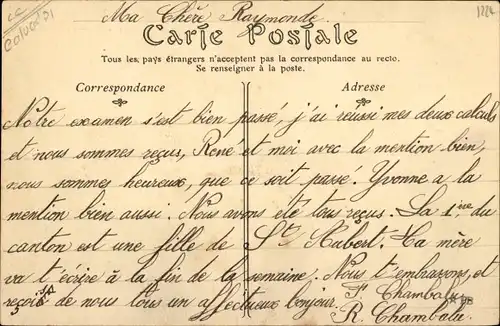 Ma Chère Raymonde.
1224
Carte Postale
Tous les pays étrangers n'acceptent pas la correspondance au recto.
Se renseigner à la poste.
Correspondance
Adresse
Notre examen s'est bien passé, j'ai reussi mes deux calculs
et nous sommes reçus, René et moi avec la mention bien,
nous sommes heureux, que ce soit passé. Yvonne a la
mention bien aussi. Nous avons été tous reçus. La 1ière du
canton est une fille de St Hubert. Ta mère
va t'écrire à la fin de la semaine. Nous t'embrassons, et
reçois de nous tous un affectueux bonjour. F. Chambalu
R. Chambalu